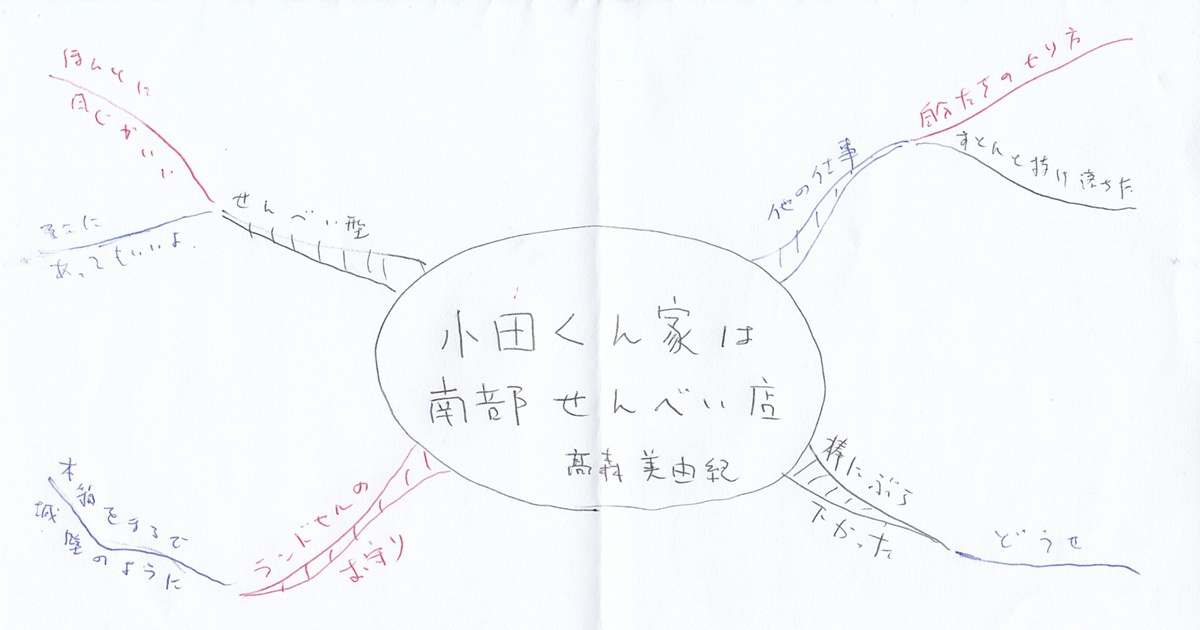 小田くん家は
南部せんべい店
髙森美由紀
他の仕事
自分たちのやり方
すとんと抜け落ちた
棒にぶら
下がった
どうせ
ランドセルの
お守り
本箱をまるで
城壁のように
せんべい型
ほんとに
感じがいい
そこに
あってもいいよ